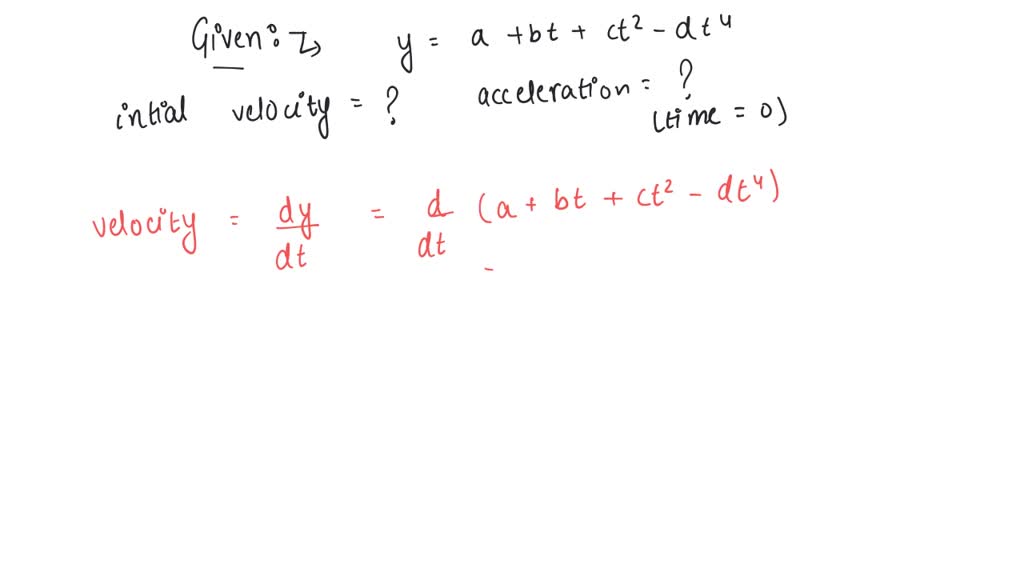 Given: y = a + bt + ct² - dt⁴
intial velocity = ? acceleration = ?
(time = 0)
velocity = dy/dt = d/dt (a + bt + ct² - dt⁴)
-